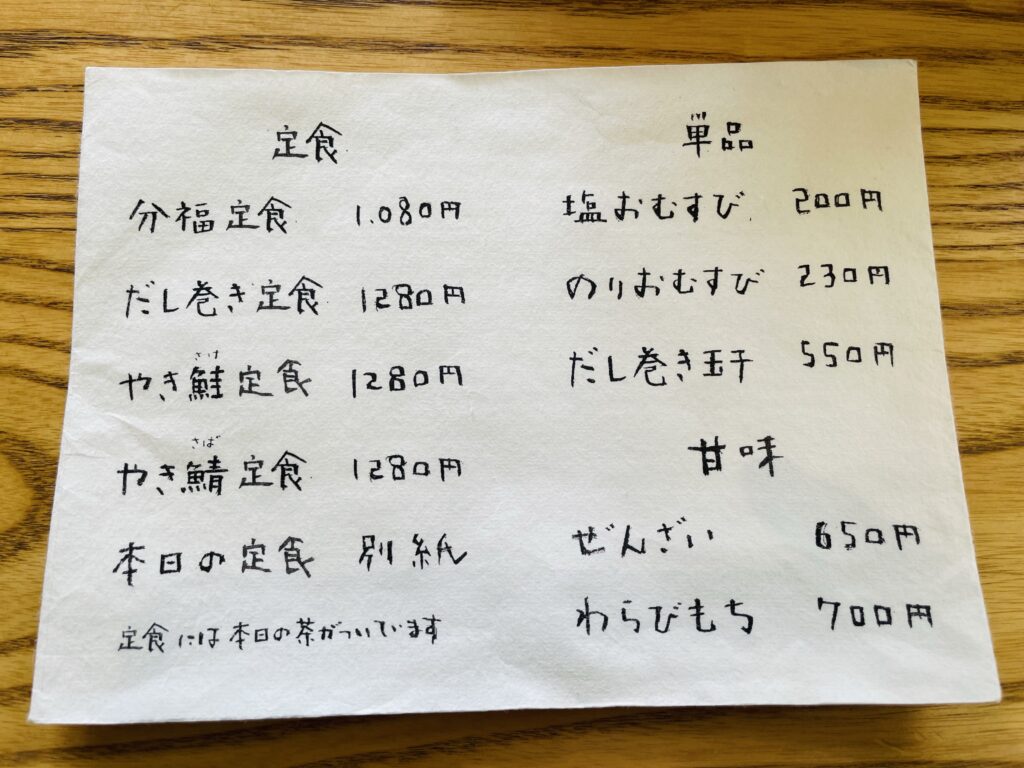 定食
分福定食 1.080円
だし巻き定食 1280円
さけ
やき鮭定食 1280円
さば
やき鯖定食 1280円
本日の定食 別紙
定食には本日の茶がついています
単品
塩おむすび 200円
のりおむすび 230円
だし巻き玉子 550円
甘味
ぜんざい 650円
わらびもち 700円